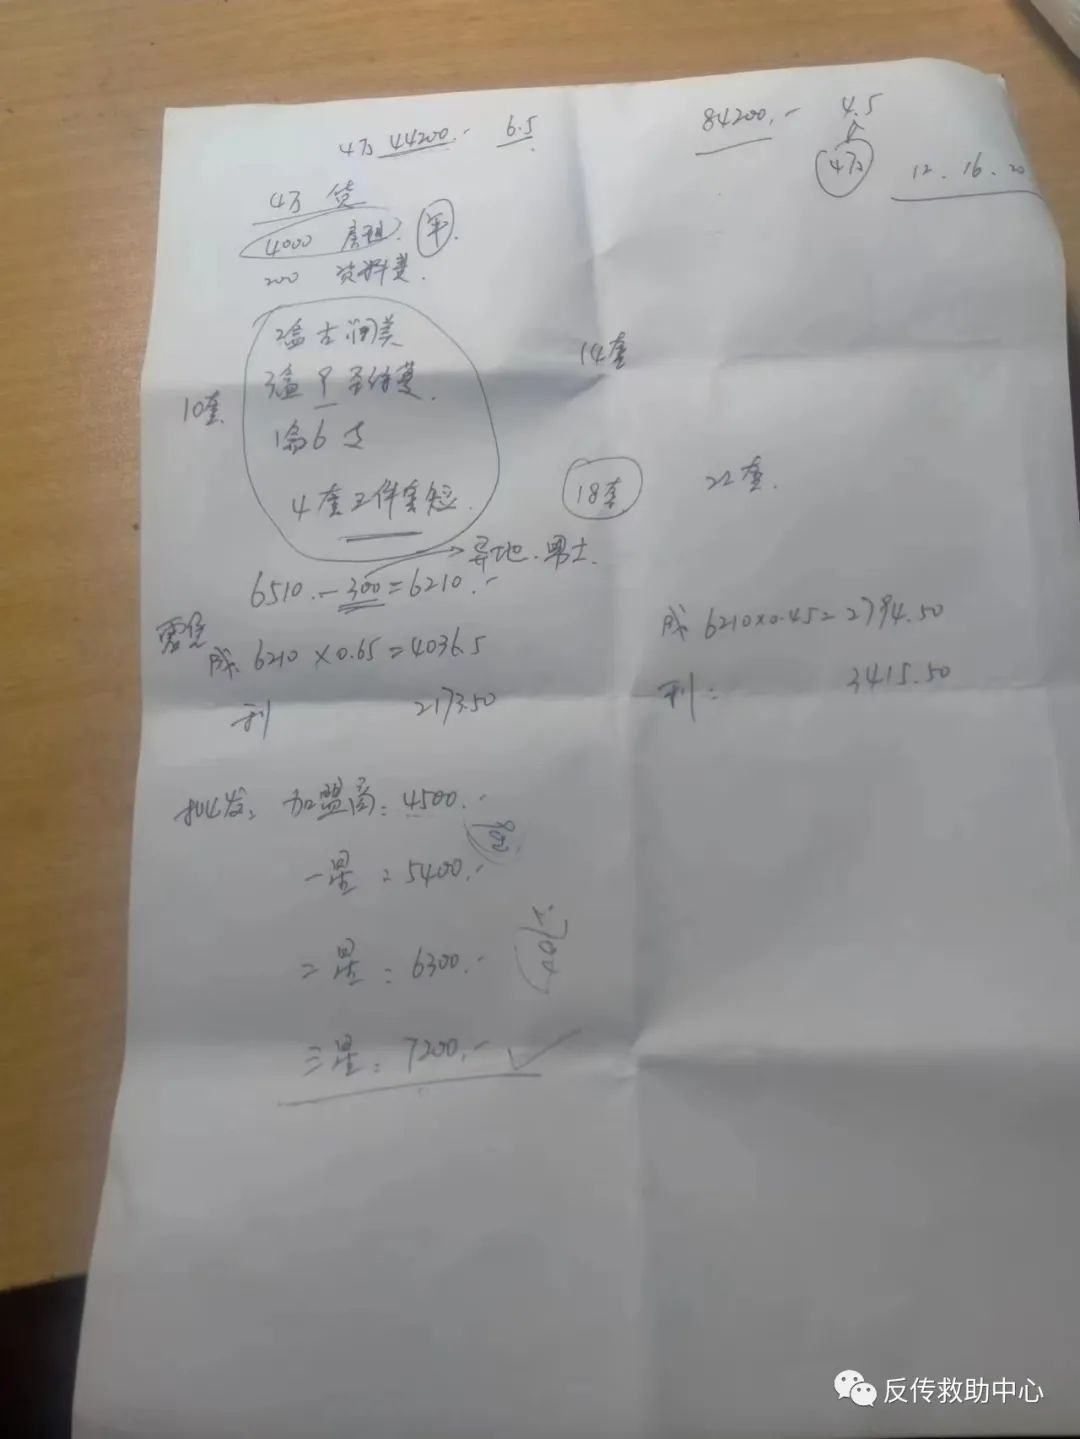 4万 44200.- 6.5
84200.- 4.5
4万
12.16.20
4万 货
4000 房租. 年.
200 资料费.
2盒古润美
3盒
1盒6支
4套三件套短.
10套
14套
18套
22套.
异地.男士.
6510.-300=6210.-
零售
成 6210×0.65=4036.5
利 2173.50
成 6210×0.45=2794.50
利: 3415.50
批发: 加盟商: 4500.-
一星: 5400.-
二星: 6300.-
三星: 7200.-
反传救助中心